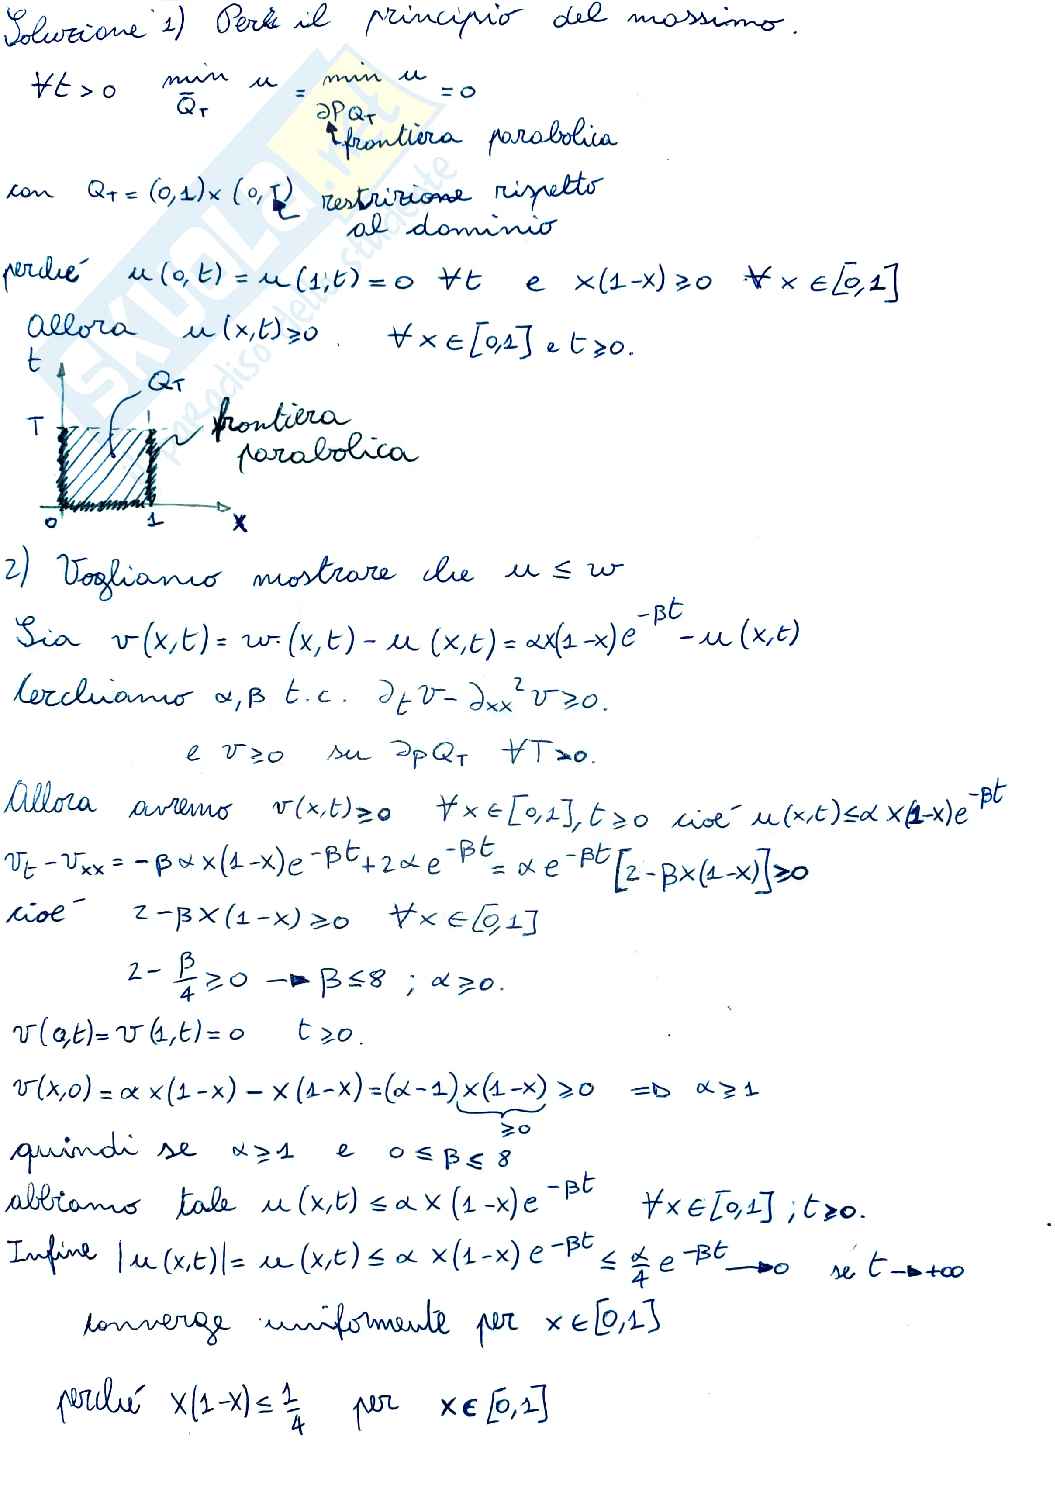 Soluzione 1) Per il principio del massimo.
∀t > 0 min_{Q̄_T} u = min_{∂P Q_T} u = 0
frontiera parabolica
con Q_T = (0,1) × (0,T) restrizione rispetto
al dominio
perché u(0,t) = u(1,t) = 0 ∀t e x(1-x) ≥ 0 ∀x ∈ [0,1]
Allora u(x,t) ≥ 0. ∀x ∈ [0,1] e t ≥ 0.
t
Q_T
T
frontiera
parabolica
0 1 x
2) Vogliamo mostrare che u ≤ w
Sia v(x,t) = w(x,t) - u(x,t) = αx(1-x)e^{-βt} - u(x,t)
Cerchiamo α,β t.c. ∂_t v - ∂_{xx}² v ≥ 0.
e v ≥ 0 su ∂_P Q_T ∀T > 0.
Allora avremo v(x,t) ≥ 0 ∀x ∈ [0,1], t ≥ 0 cioé u(x,t) ≤ αx(1-x)e^{-βt}
v_t - v_xx = -βαx(1-x)e^{-βt} + 2αe^{-βt} = αe^{-βt}[2 - βx(1-x)] ≥ 0
cioé 2 - βx(1-x) ≥ 0 ∀x ∈ [0,1]
2 - β/4 ≥ 0 → β ≤ 8 ; α ≥ 0.
v(0,t) = v(1,t) = 0 t ≥ 0.
v(x,0) = αx(1-x) - x(1-x) = (α-1)x(1-x) ≥ 0 ⇒ α ≥ 1
≥0
quindi se α ≥ 1 e 0 ≤ β ≤ 8
abbiamo tale u(x,t) ≤ αx(1-x)e^{-βt} ∀x ∈ [0,1] ; t ≥ 0.
Infine |u(x,t)| = u(x,t) ≤ αx(1-x)e^{-βt} ≤ α/4 e^{-βt} → 0 sé t → +∞
converge uniformente per x ∈ [0,1]
perché x(1-x) ≤ 1/4 per x ∈ [0,1]
SKUOLA.net
paradiso dello studente